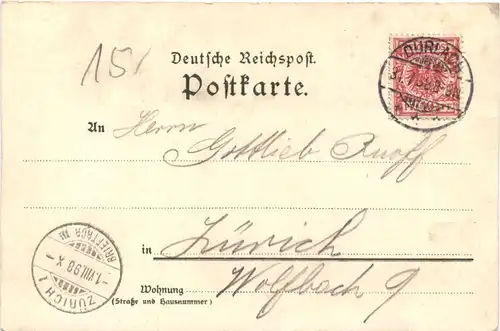 15
Deutsche Reichspost.
Postkarte.
DURLACH
An Herrn
Gottlieb Ruoff
in Zürich
Wohnung Wolfbach 9
(Straße und Hausnummer)
ZÜRICH 1
-1.VIII.98.X-
BRIEFTRÄG.